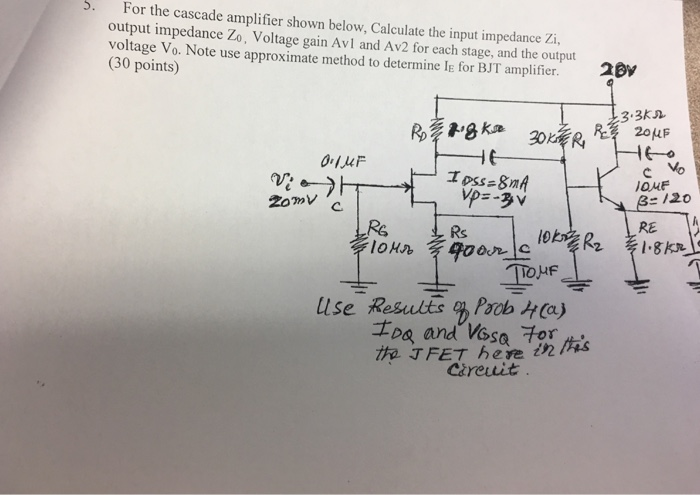 5. For the cascade amplifier shown below, Calculate the input impedance Zi,
output impedance Z0, Voltage gain Av1 and Av2 for each stage, and the output
voltage V0. Note use approximate method to determine IE for BJT amplifier.
(30 points)
20V
RD
30K R1
RC
3.3KΩ
20μF
0.1μF
Vi
20mV
C
IDSS=8mA
VP=-3V
C
V0
10μF
β=120
RG
10MΩ
Rs
900Ω
C
10μF
10K R2
RE
1.8KΩ
Use Results of Prob 4(a)
IDQ and VGSQ for
the JFET here in this
Circuit.